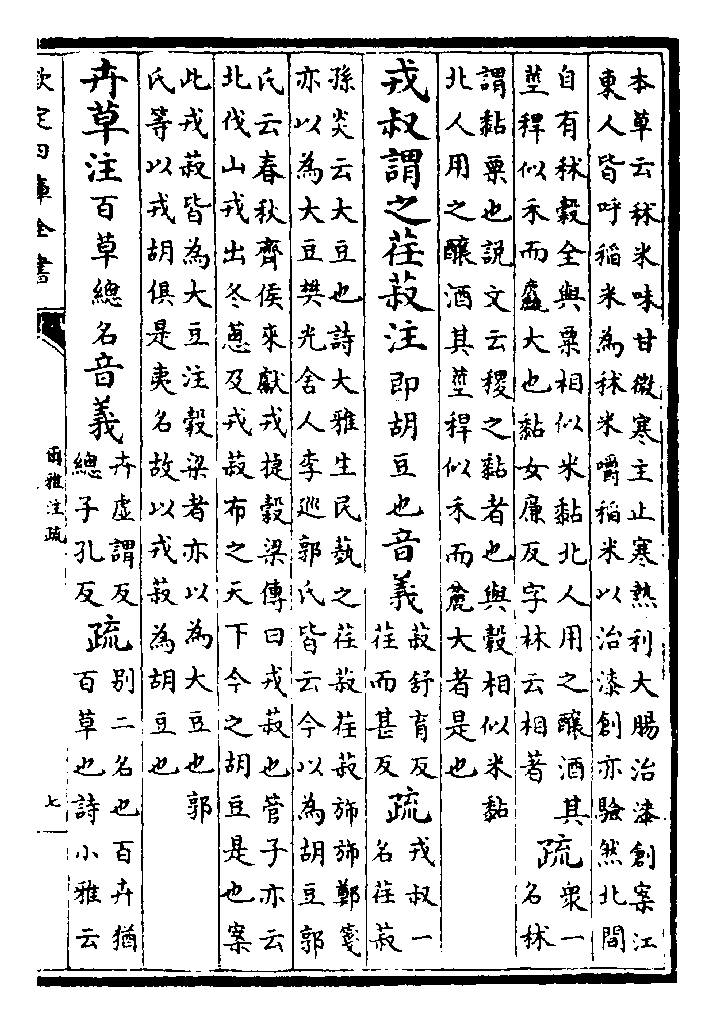 本草云秫米味甘微寒主止寒熱利大腸治漆創案江
東人皆呼稻米為秫米嚼稻米以治漆創亦驗然北間
自有秫穀全與粟相似米黏北人用之釀酒其
莖稈似禾而麤大也黏女廉反字林云相著
疏
衆一
名秫
謂黏粟也說文云稷之黏者也與穀相似米黏
北人用之釀酒其莖稈似禾而麄大者是也
戎叔謂之荏菽注即胡豆也音義
菽舒育反
荏而甚反
疏
戎叔一
名荏菽
孫炎云大豆也詩大雅生民蓺之荏菽荏菽斾斾鄭箋
亦以為大豆樊光舍人李巡郭氏皆云今以為胡豆郭
氏云春秋齊侯來獻戎捷穀梁傳曰戎菽也管子亦云
北伐山戎出冬蔥及戎菽布之天下今之胡豆是也案
此戎菽皆為大豆注穀梁者亦以為大豆也郭
氏等以戎胡俱是夷名故以戎菽為胡豆也
卉草注百草總名音義
卉虛謂反
總子孔反
疏
別二名也百卉猶
百草也詩小雅云
欽定四庫全書
爾雅注疏
七